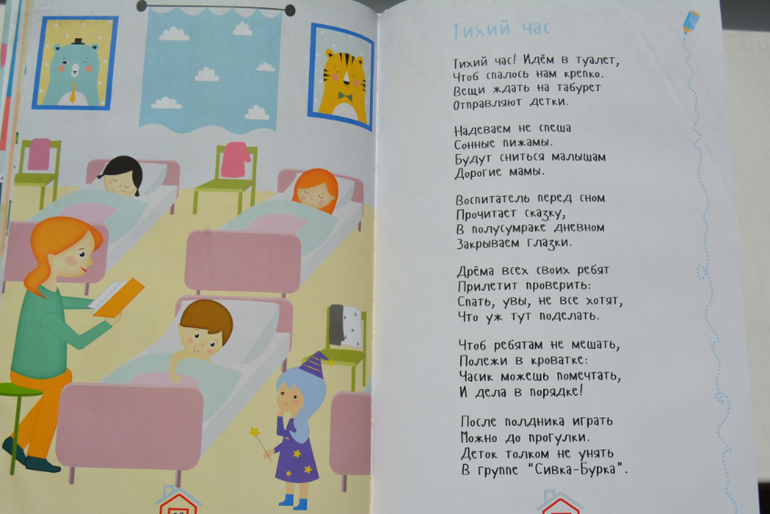 Тихий час
Тихий час! Идём в туалет,
Чтоб спалось нам крепко.
Вещи ждать на табурет
Отправляют детки.
Надеваем не спеша
Сонные пижамы.
Будут сниться малышам
Дорогие мамы.
Воспитатель перед сном
Прочитает сказку,
В полусумраке дневном
Закрываем глазки.
Дрёма всех своих ребят
Прилетит проверить:
Спать, увы, не все хотят,
Что уж тут поделать.
Чтоб ребятам не мешать,
Полежи в кроватке:
Часик можешь помечтать,
И дела в порядке!
После полдника играть
Можно до прогулки.
Деток толком не унять
В группе "Сивка-Бурка".